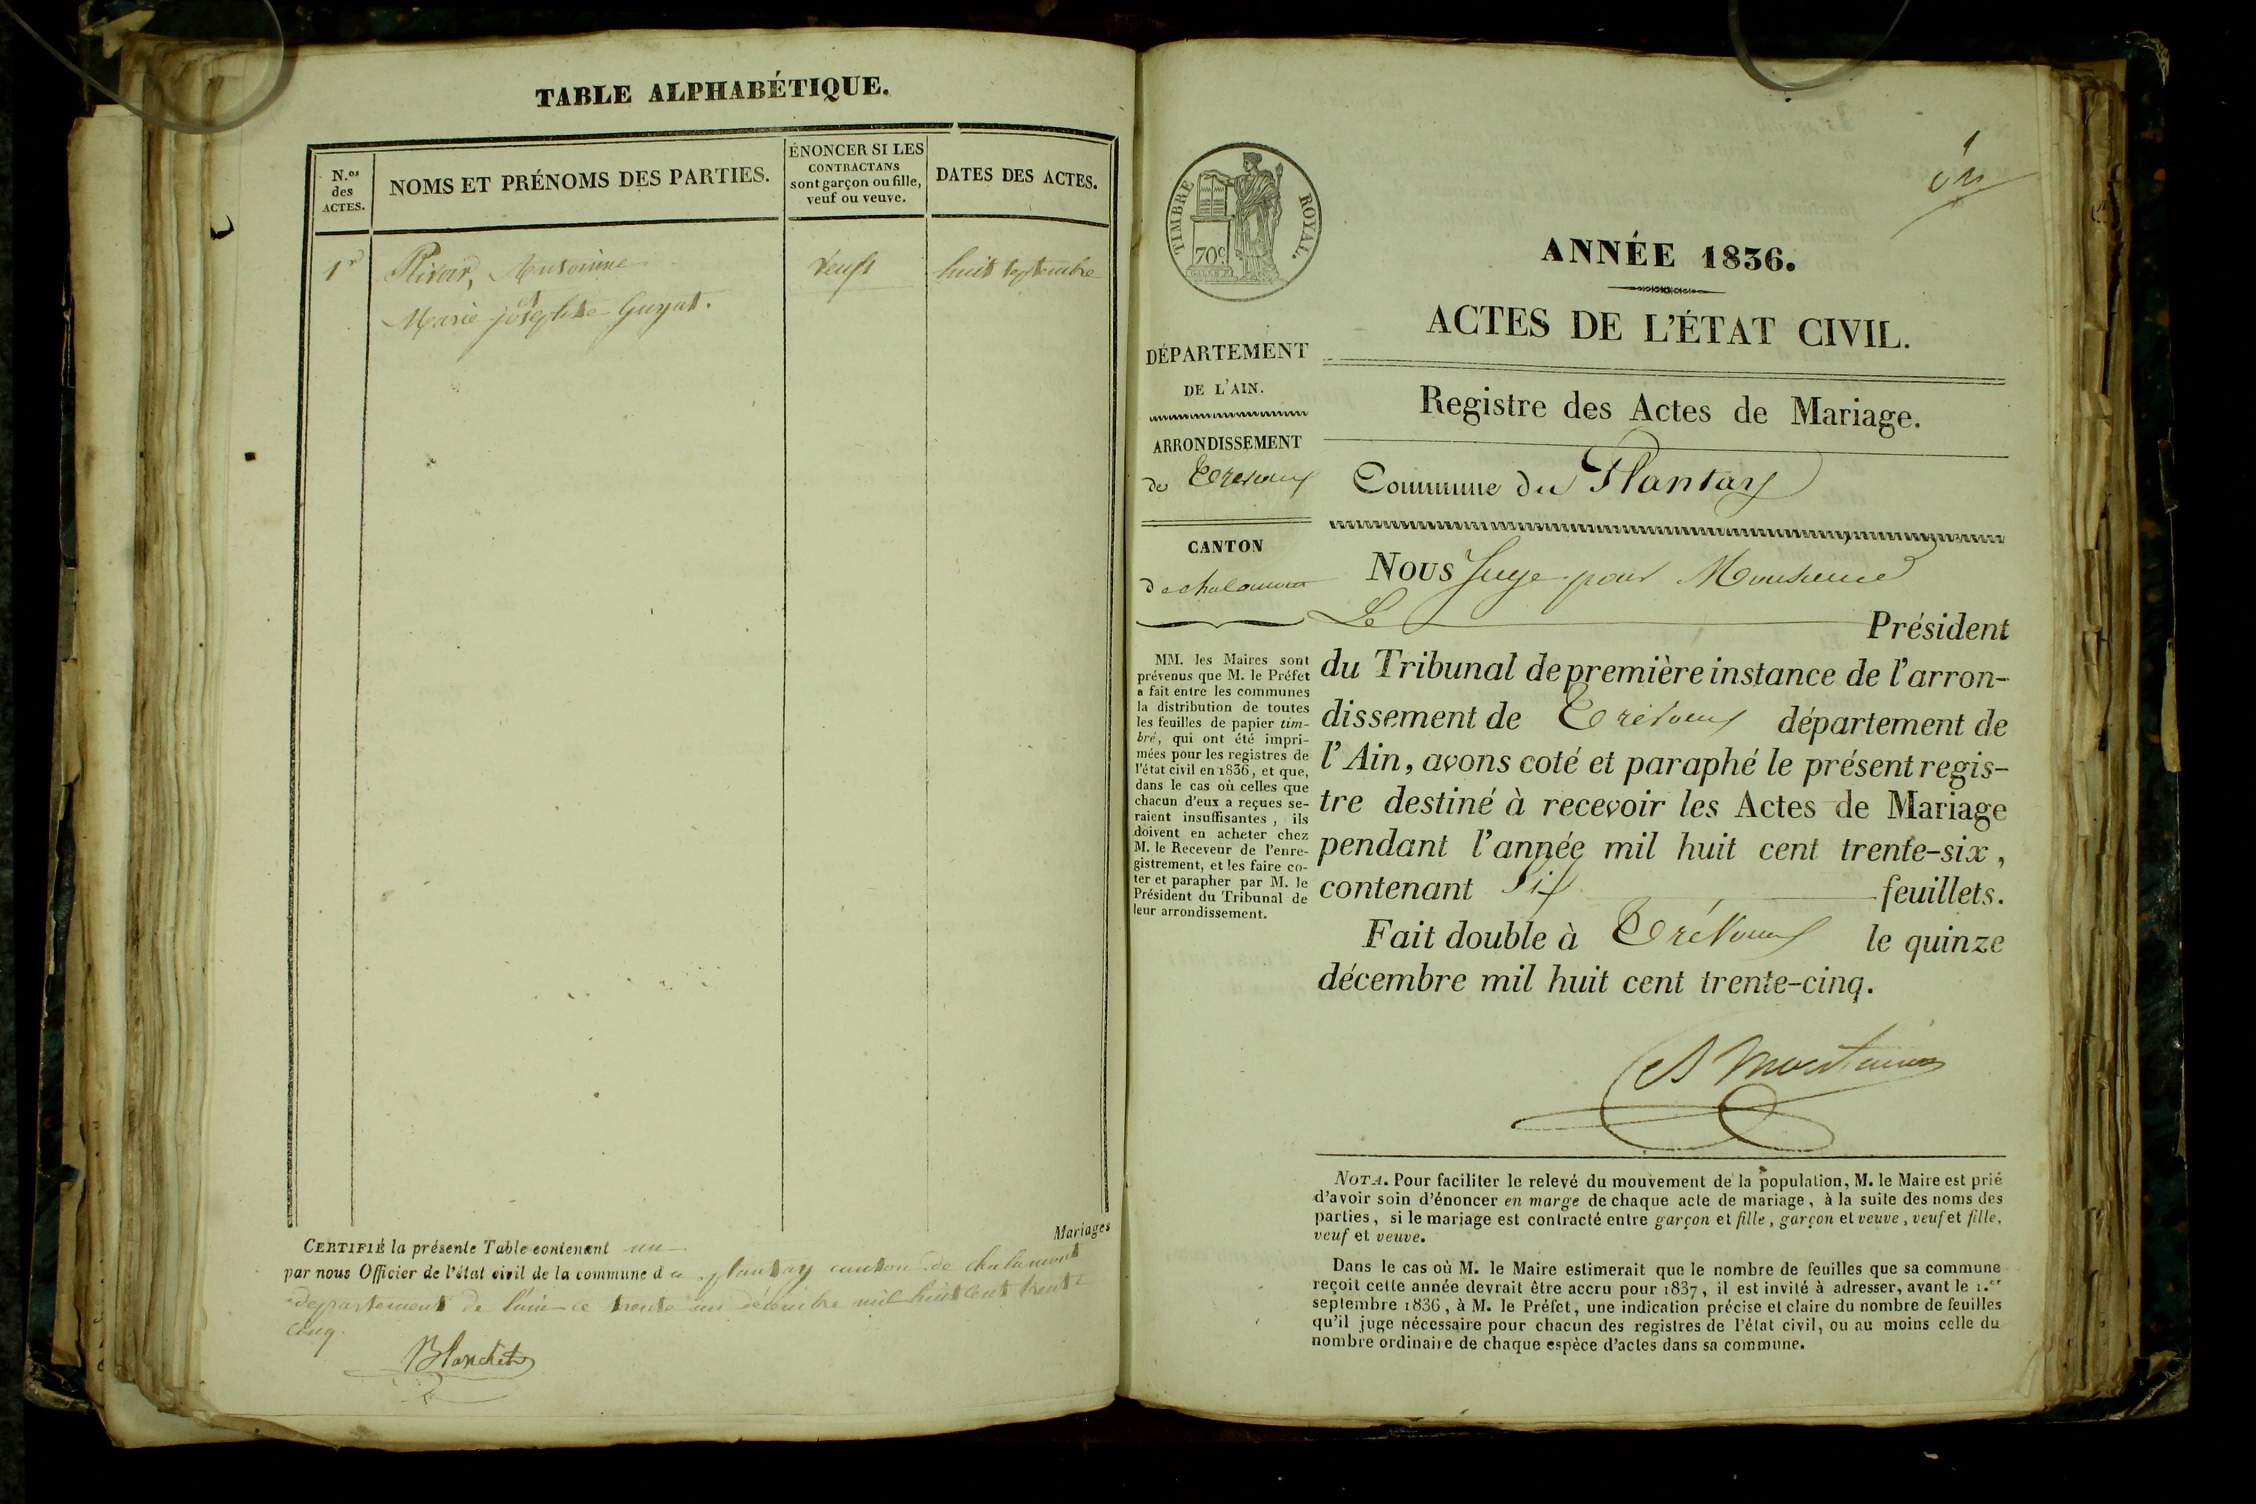 TABLE ALPHABÉTIQUE.
N.os des ACTES.
NOMS ET PRÉNOMS DES PARTIES.
ÉNONCER SI LES
CONTRACTANS
sont garçon ou fille,
veuf ou veuve.
DATES DES ACTES.
1r
Antoinne
veufs
huit septembre
et
Marie josephte Guyat.
Mariages
CERTIFIÉ la présente Table contenant un
par nous Officier de l'état civil de la commune du plantay canton de chalamont
departement de l'ain ce trente un décembre mil huit cent trente
cinq.
Blanchet
un
TIMBRE ROYAL.
70c
ANNÉE 1836.
ACTES DE L'ÉTAT CIVIL.
Registre des Actes de Mariage.
Commune du Plantay
DÉPARTEMENT
DE L'AIN.
ARRONDISSEMENT
de Trevoux
CANTON
de chalamont
MM. les Maires sont
prévenus que M. le Préfet
a fait entre les communes
la distribution de toutes
les feuilles de papier tim-
bré, qui ont été impri-
mées pour les registres de
l'état civil en 1836, et que,
dans le cas où celles que
chacun d'eux a reçues se-
raient insuffisantes, ils
doivent en acheter chez
M. le Receveur de l'enre-
gistrement, et les faire co-
ter et parapher par M. le
Président du Tribunal de
leur arrondissement.
NOUS Juge pour Monsieur
Le Président
du Tribunal de première instance de l'arron-
dissement de Trévoux département de
l'Ain, avons coté et paraphé le présent regis-
tre destiné à recevoir les Actes de Mariage
pendant l'année mil huit cent trente-six,
contenant Six feuillets.
Fait double à Trévoux le quinze
décembre mil huit cent trente-cinq.
NOTA. Pour faciliter le relevé du mouvement de la population, M. le Maire est prié
d'avoir soin d'énoncer en marge de chaque acte de mariage, à la suite des noms des
parties, si le mariage est contracté entre garçon et fille, garçon et veuve, veuf et fille,
veuf et veuve.
Dans le cas où M. le Maire estimerait que le nombre de feuilles que sa commune
reçoit cette année devrait être accru pour 1837, il est invité à adresser, avant le 1.er
septembre 1836, à M. le Préfet, une indication précise et claire du nombre de feuilles
qu'il juge nécessaire pour chacun des registres de l'état civil, ou au moins celle du
nombre ordinaire de chaque espèce d'actes dans sa commune.